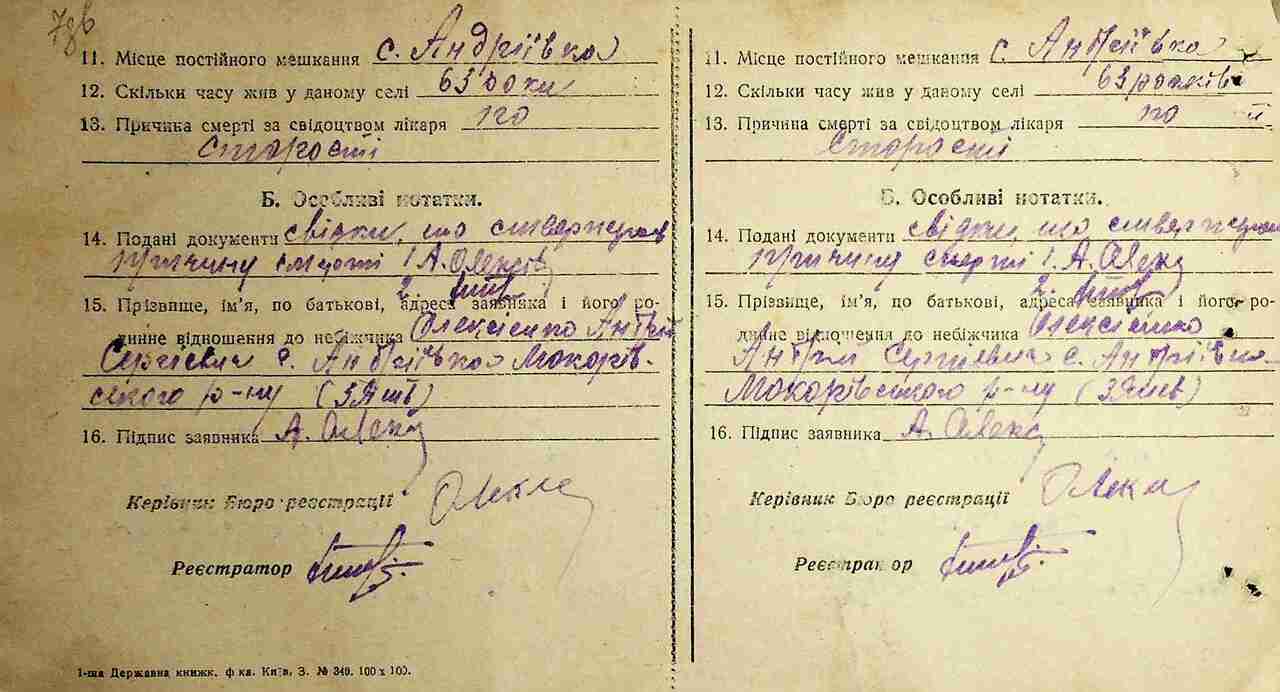 11. Місце постійного мешкання с. Андріївка
12. Скільки часу жив у даному селі 63 роки
13. Причина смерті за свідоцтвом лікаря по
старості
Б. Особливі нотатки.
14. Подані документи свідки, що
причину смерті 1. А. Олексі
2.
15. Прізвище, ім'я, по батькові, адреса заявника і його ро-
динне відношення до небіжчика Олексієнко Андрій
Сергієвич с. Андріївка Макарів-
ського р-ну (
16. Підпис заявника А. Олекс
Керівник Бюро реєстрації
Реєстратор
1-ша Державна книжк. ф-ка. Київ, З. № 340. 100 х 100.
11. Місце постійного мешкання с. Андріївка
12. Скільки часу жив у даному селі 63 років
13. Причина смерті за свідоцтвом лікаря по
старості
Б. Особливі нотатки.
14. Подані документи свідки, що
причину смерті 1. А. Олекс
2.
15. Прізвище, ім'я, по батькові, адреса заявника і його ро-
динне відношення до небіжчика Олексієнко
Андрій Сергієвич с. Андріївка
Макарівського р-ну (
16. Підпис заявника А. Олекс
Керівник Бюро реєстрації
Реєстратор